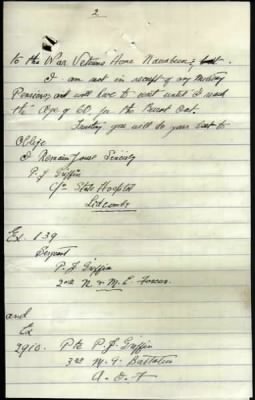 2
to the War Veterans Home Narrabeen
I am not in receipt of any Military
Pension, and will have to wait until I reach
the Age of 60 for the Burnt Out.
Trusting you will do your best to
Oblige
I Remain Yours Sincerely
P. J. Griffin
C/o State Hospital
Lidcombe
Ex 139
Sergeant
P. J. Griffin
2nd N & M. E. Forces
and
Ex
2910. Pte P. J. Griffin
3rd M. G. Battalion
A. I. F